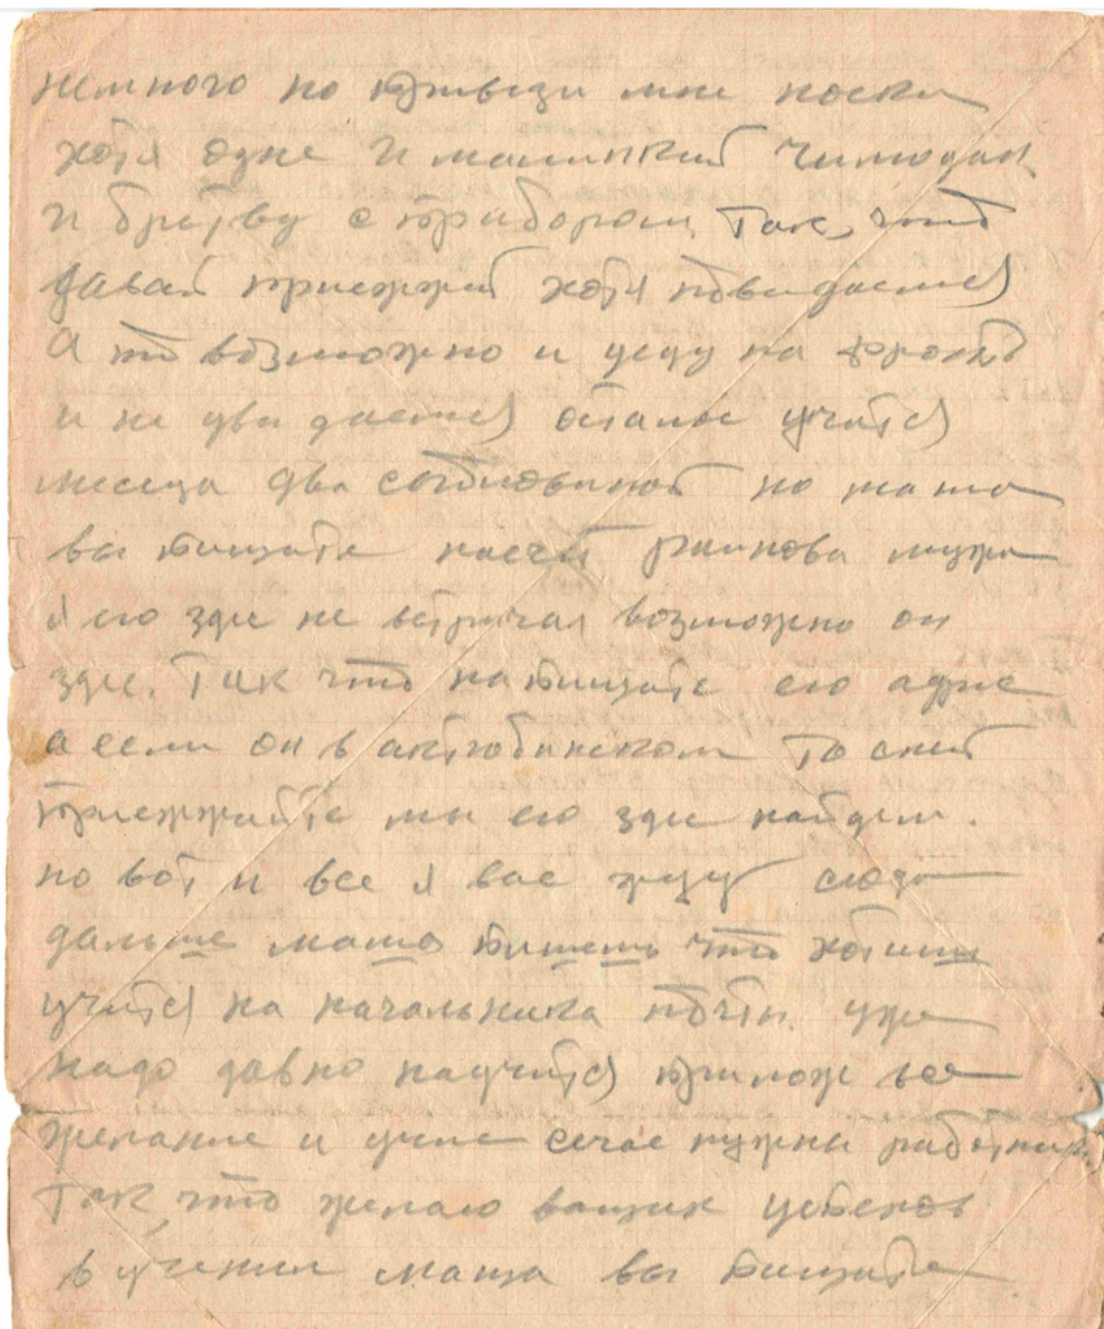 немного но привези мне носки
хотя одне и малинкий чимодан
и бритву с прибором так, что
давай приежжай хотя повидаемся
а то возможно и уеду на фронт
и не увидаемся осталос учится
месеца два споловиной но мама
вы пишите насчет мужа
я его зде не встричал возможно он
зде. Так что напишите его адрис
а если он в актюбинском то с ней
приежжайте мы его зде найдем.
но вот и все я вас жду сюда
дальше маша пишешь что хотиш
учится на начальника почты уже
надо давно научится прилож все
желание и учис сечас нужны работники
так, что желаю ваших успехов
в учении маша вы пишите